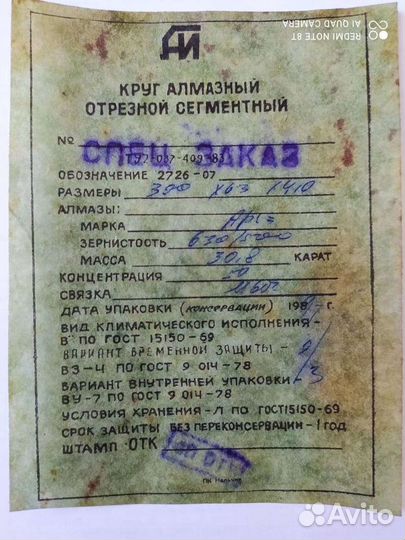 REDMI NOTE 8T
AI QUAD CAMERA
АИ
КРУГ АЛМАЗНЫЙ
ОТРЕЗНОЙ СЕГМЕНТНЫЙ
№
СПЕЦ ЗАКАЗ
ТУ2-037-409-83
ОБОЗНАЧЕНИЕ 2726-07
РАЗМЕРЫ
АЛМАЗЫ:
МАРКА
ЗЕРНИСТОСТЬ 630/500
МАССА 30,8 КАРАТ
КОНЦЕНТРАЦИЯ
СВЯЗКА
ДАТА УПАКОВКИ (КОНСЕРВАЦИИ) 198 г.
ВИД КЛИМАТИЧЕСКОГО ИСПОЛНЕНИЯ-
В ПО ГОСТ 15150-69
ВАРИАНТ ВРЕМЕННОЙ ЗАЩИТЫ-
ВЗ-4 ПО ГОСТ 9 014-78
ВАРИАНТ ВНУТРЕННЕЙ УПАКОВКИ-
ВУ-7 ПО ГОСТ 9 014-78
УСЛОВИЯ ХРАНЕНИЯ-Л ПО ГОСТ15150-69
СРОК ЗАЩИТЫ БЕЗ ПЕРЕКОНСЕРВАЦИИ-1 ГОД
ШТАМП ОТК
ПК Нальчик
Avito